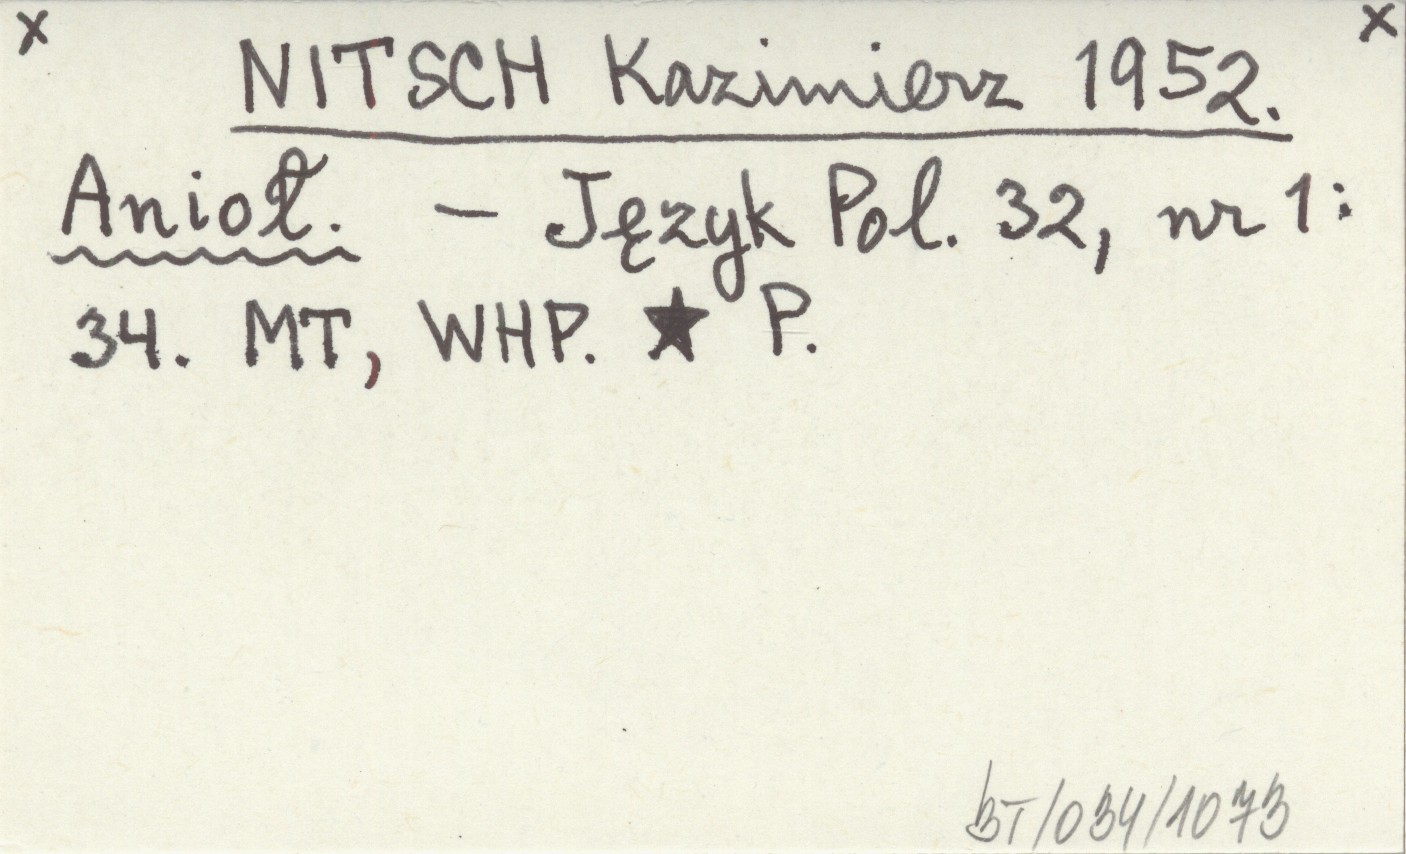 x x
NITSCH Kazimierz 1952.
Anioł. – Język Pol. 32, nr 1:
34. MT, WHP. ★ P.
BT/034/1073